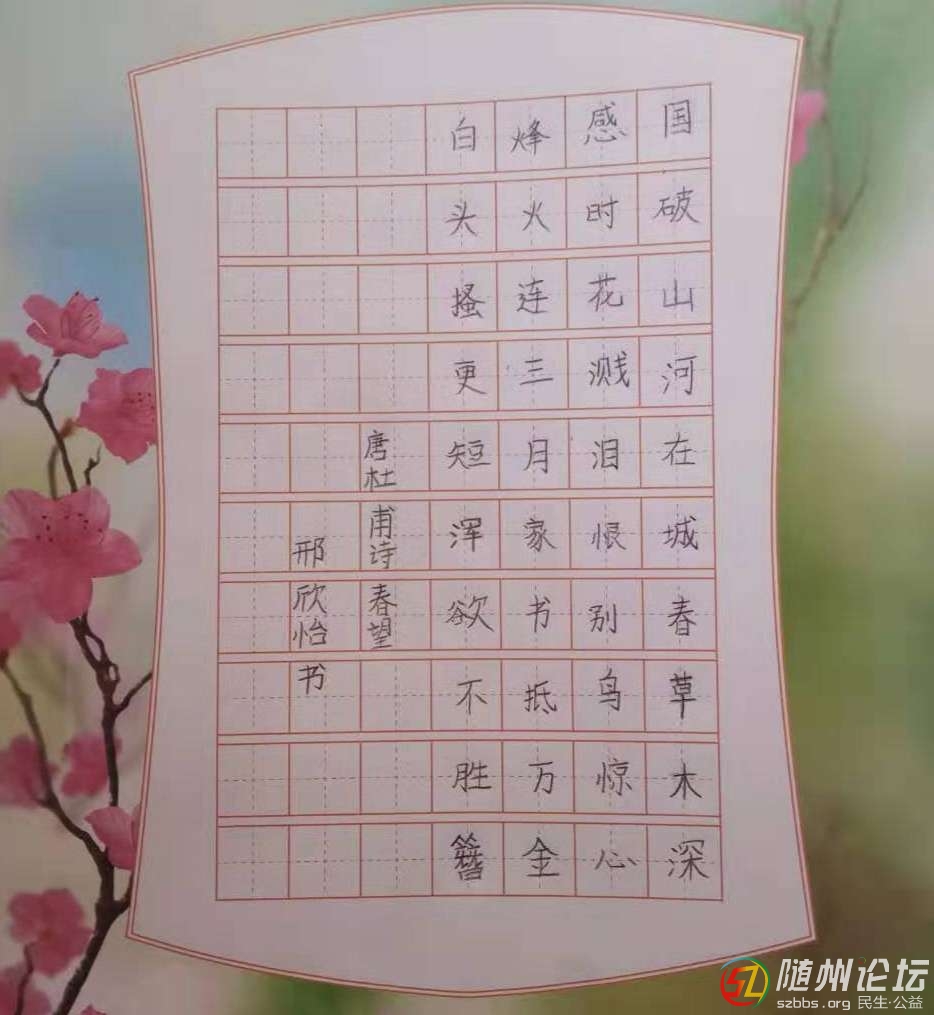 国破山河在城春草木深
感时花溅泪恨别鸟惊心
烽火连三月家书抵万金
白头搔更短浑欲不胜簪
唐杜甫诗春望
邢欣怡书
随州论坛
szbbs.org 民生·公益